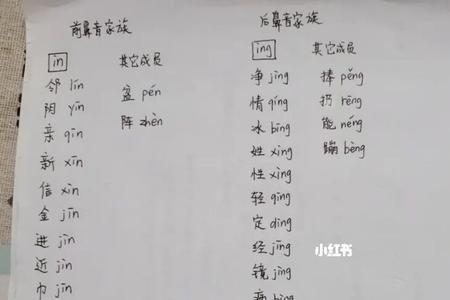 前鼻音家族
in 其它成员
邻 lín 盆 pén
阴 yīn 阵 zhèn
亲 qīn
新 xīn
信 xìn
金 jīn
进 jìn
近 jìn
巾 jīn
后鼻音家族
ing 其它成员
净 jìng 捧 pěng
情 qíng 扔 rēng
冰 bīng 能 néng
姓 xìng 蹦 bèng
性 xìng
轻 qīng
定 dìng
经 jīng
镜 jìng
病
小红书